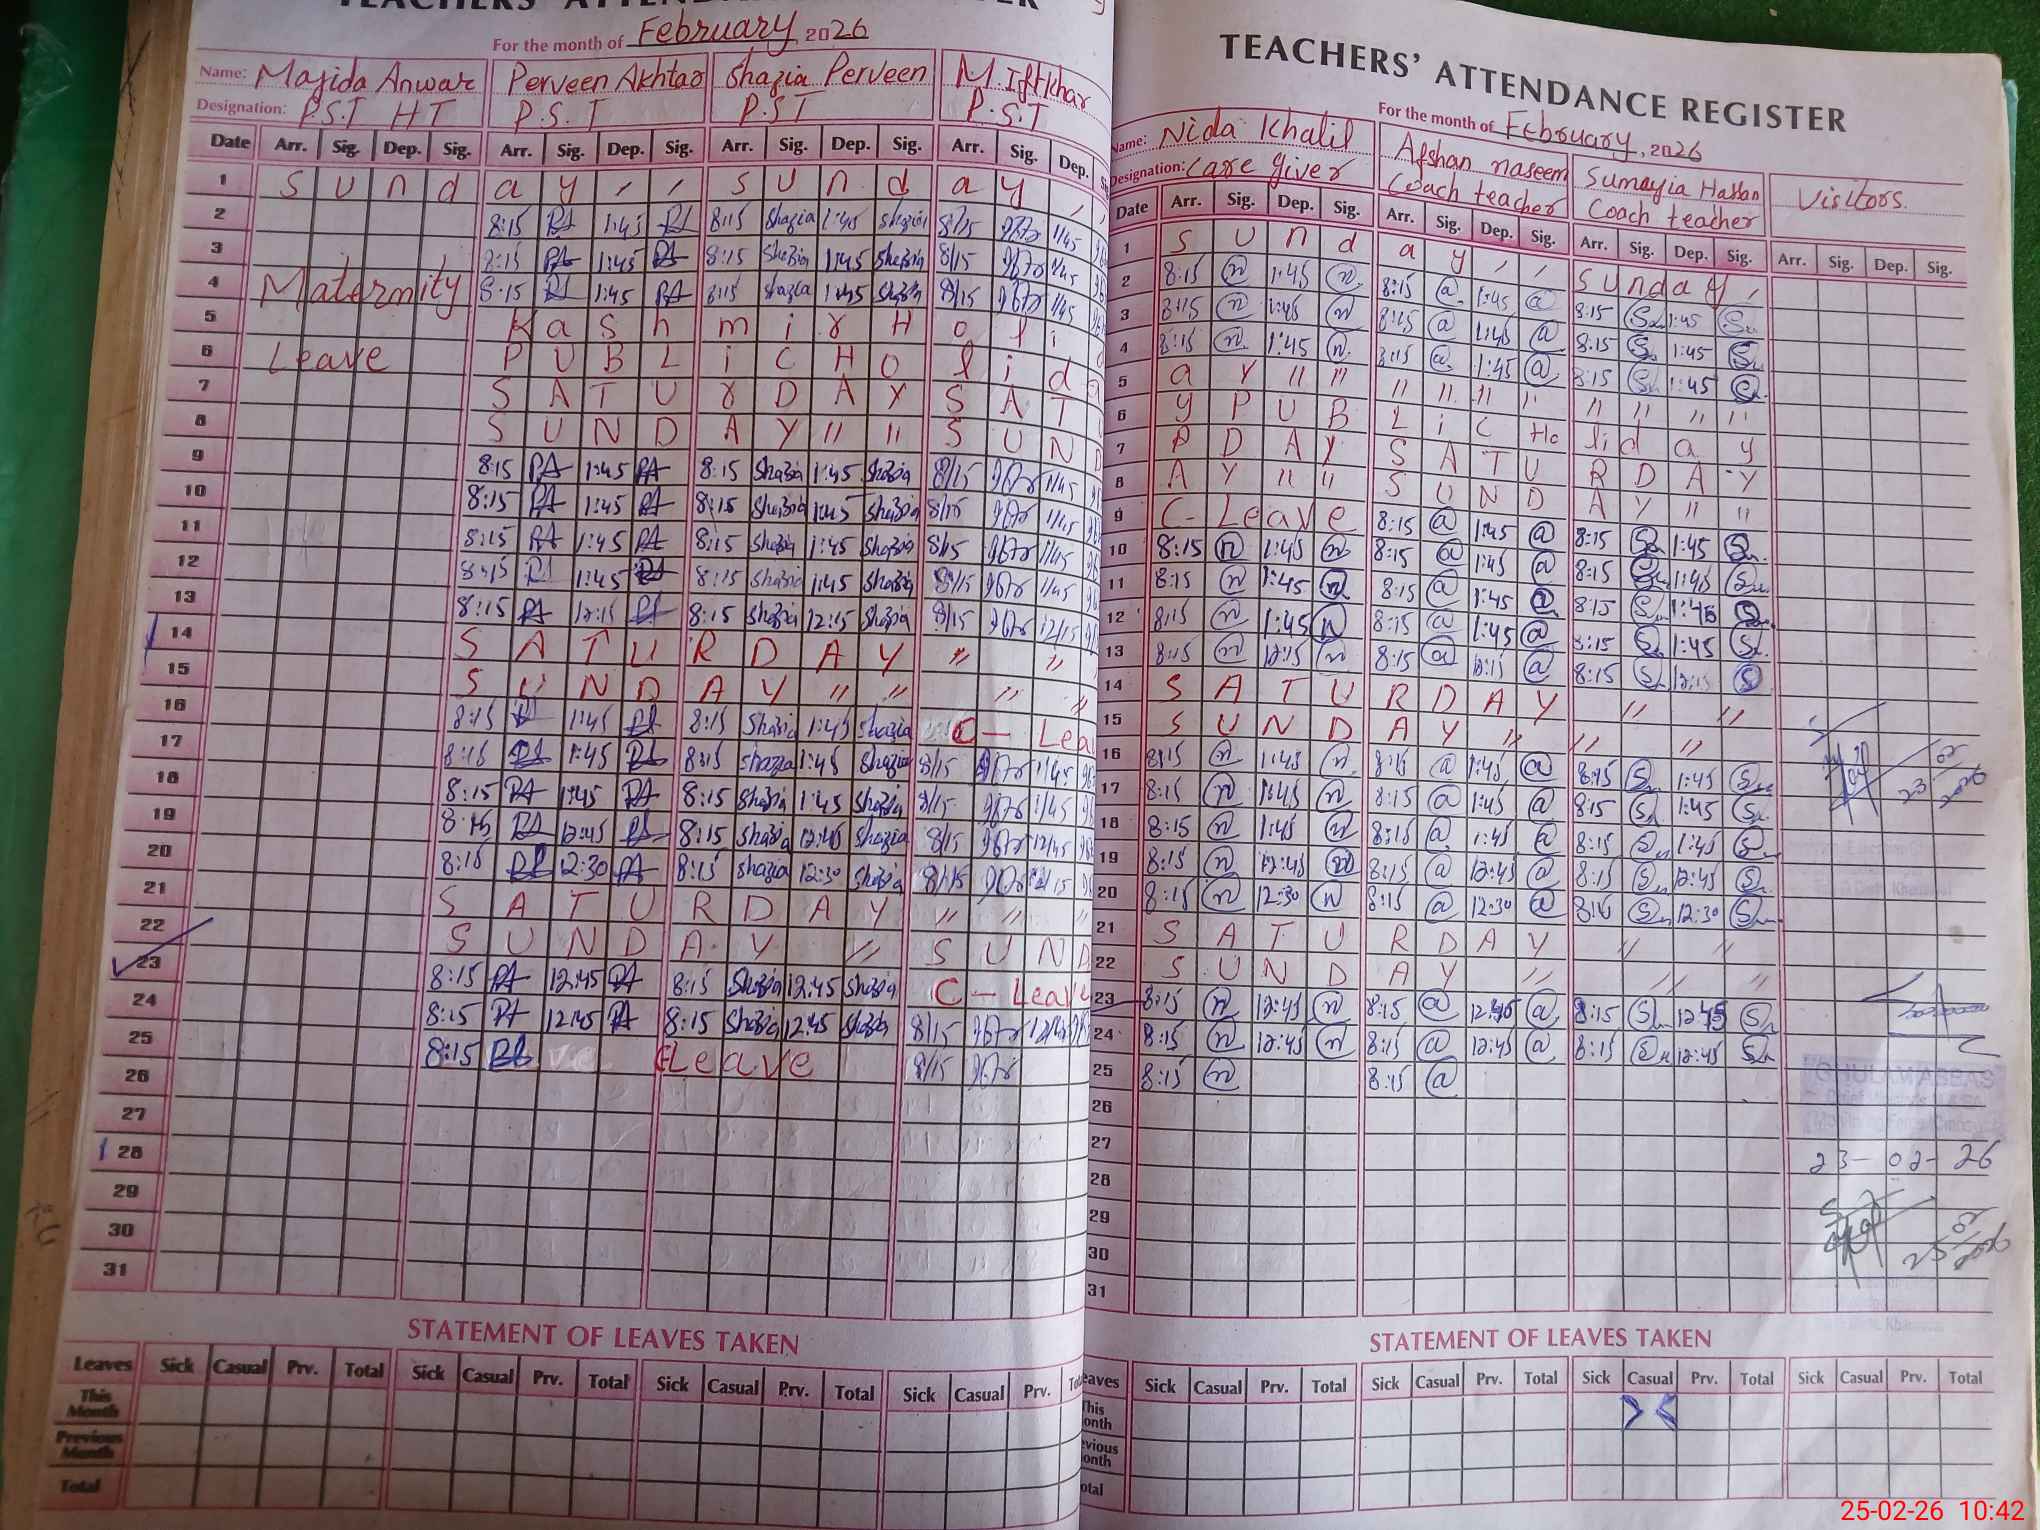 TEACHERS' ATTENDANCE REGISTER
For the month of February, 2026
Name: Majida Anwar Perveen Akhtar Shazia Perveen M. Iftkhar
Designation: P.S.T HT P.S.T P.S.T P.S.T
Date Arr. Sig. Dep. Sig. Arr. Sig. Dep. Sig. Arr. Sig. Dep. Sig. Arr. Sig. Dep.
1 Sunday Sunday
2 8:15 PA 1:45 PA 8:15 Shazia 1:45 Shazia 8/15 1/45
3 8:15 PA 1:45 PA 8:15 Shazia 1:45 Shazia 8/15 1/45
4 Maternity 8:15 PA 1:45 PA 8:15 Shazia 1:45 Shazia 8/15 1/45
5 Kashmir Holi
6 Leave PUBLiC HOlida
7 SATUrDAY SAT
8 SUNDAY " " SUND
9 8:15 PA 1:45 PA 8:15 Shazia 1:45 Shazia 8/15 1/45
10 8:15 PA 1:45 PA 8:15 Shazia 1:45 Shazia 8/15 1/45
11 8:15 PA 1:45 PA 8:15 Shazia 1:45 Shazia 8/15 1/45
12 8:15 PA 1:45 PA 8:15 Shazia 1:45 Shazia 8/15 1/45
13 8:15 PA 12:15 PA 8:15 Shazia 12:15 Shazia 8/15 12/15
14 SATURDAY " "
15 SUNDAY " " " "
16 8:15 PA 1:45 PA 8:15 Shazia 1:45 Shazia C- Lea
17 8:15 PA 1:45 PA 8:15 Shazia 1:45 Shazia 8/15 1/45
18 8:15 PA 1:45 PA 8:15 Shazia 1:45 Shazia 8/15 1/45
19 8:15 PA 12:45 PA 8:15 Shazia 12:45 Shazia 8/15 12/45
20 8:15 PA 12:30 PA 8:15 Shazia 12:30 Shazia 8/15
21 SATURDAY " " "
22 SUNDAY " SUND
23 8:15 PA 12:45 PA 8:15 Shazia 12:45 Shazia C- Leave
24 8:15 PA 12:45 PA 8:15 Shazia 12:45 Shazia 8/15
25 8:15 PA Leave 8/15
26
27
28
29
30
31
STATEMENT OF LEAVES TAKEN
Leaves Sick Casual Prv. Total Sick Casual Prv. Total Sick Casual Prv. Total Sick Casual Prv.
This Month
Previous Month
Total
TEACHERS' ATTENDANCE REGISTER
For the month of February, 2026
Name: Nida Khalil Afshan naseem Sumayia Hassan Visitors.
Designation: Care giver Coach teacher Coach teacher
Date Arr. Sig. Dep. Sig. Arr. Sig. Dep. Sig. Arr. Sig. Dep. Sig. Arr. Sig. Dep. Sig.
1 Sunday Sunday
2 8:15 n 1:45 n 8:15 a 1:45 a 8:15 S 1:45 S
3 8:15 n 1:45 n 8:15 a 1:45 a 8:15 S 1:45 S
4 8:15 n 1:45 n 8:15 a 1:45 a 8:15 S 1:45 S
5 a y " " " " " " " " " "
6 y PUBLiC Holiday
7 RDAY SATURDAY
8 AY " " SUNDAY " "
9 C- Leave 8:15 a 1:45 a 8:15 S 1:45 S
10 8:15 n 1:45 n 8:15 a 1:45 a 8:15 S 1:45 S
11 8:15 n 1:45 n 8:15 a 1:45 a 8:15 S 1:45 S
12 8:15 n 1:45 n 8:15 a 1:45 a 8:15 S 1:45 S
13 8:15 n 12:15 n 8:15 a 12:15 a 8:15 S 12:15 S
14 SATURDAY " "
15 SUNDAY " " "
16 8:15 n 1:45 n 8:15 a 1:45 a 8:15 S 1:45 S
17 8:15 n 1:45 n 8:15 a 1:45 a 8:15 S 1:45 S
18 8:15 n 1:45 n 8:15 a 1:45 a 8:15 S 1:45 S
19 8:15 n 12:45 n 8:15 a 12:45 a 8:15 S 12:45 S
20 8:15 n 12:30 n 8:15 a 12:30 a 8:15 S 12:30 S
21 SATURDAY " "
22 SUNDAY " " "
23 8:15 n 12:45 n 8:15 a 12:45 a 8:15 S 12:45 S
24 8:15 n 12:45 n 8:15 a 12:45 a 8:15 S 12:45 S
25 8:15 n 8:15 a
26
27
28
29
30
31
23/02/2026
GHULAM ABBAS
23-02-26
25/02/2026
STATEMENT OF LEAVES TAKEN
Leaves Sick Casual Prv. Total Sick Casual Prv. Total Sick Casual Prv. Total Sick Casual Prv. Total
This Month
Previous Month
Total
25-02-26 10:42